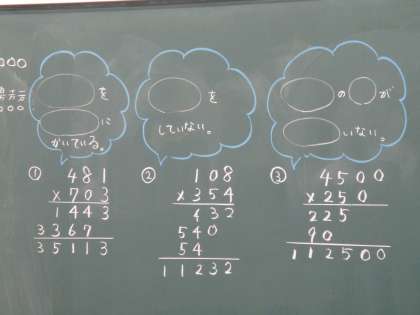 を
に
かいている。
を
していない。
の が
いない。
① 481
×703
1443
3367
35113
② 108
×354
432
540
54
11232
③ 4500
×250
225
90
112500